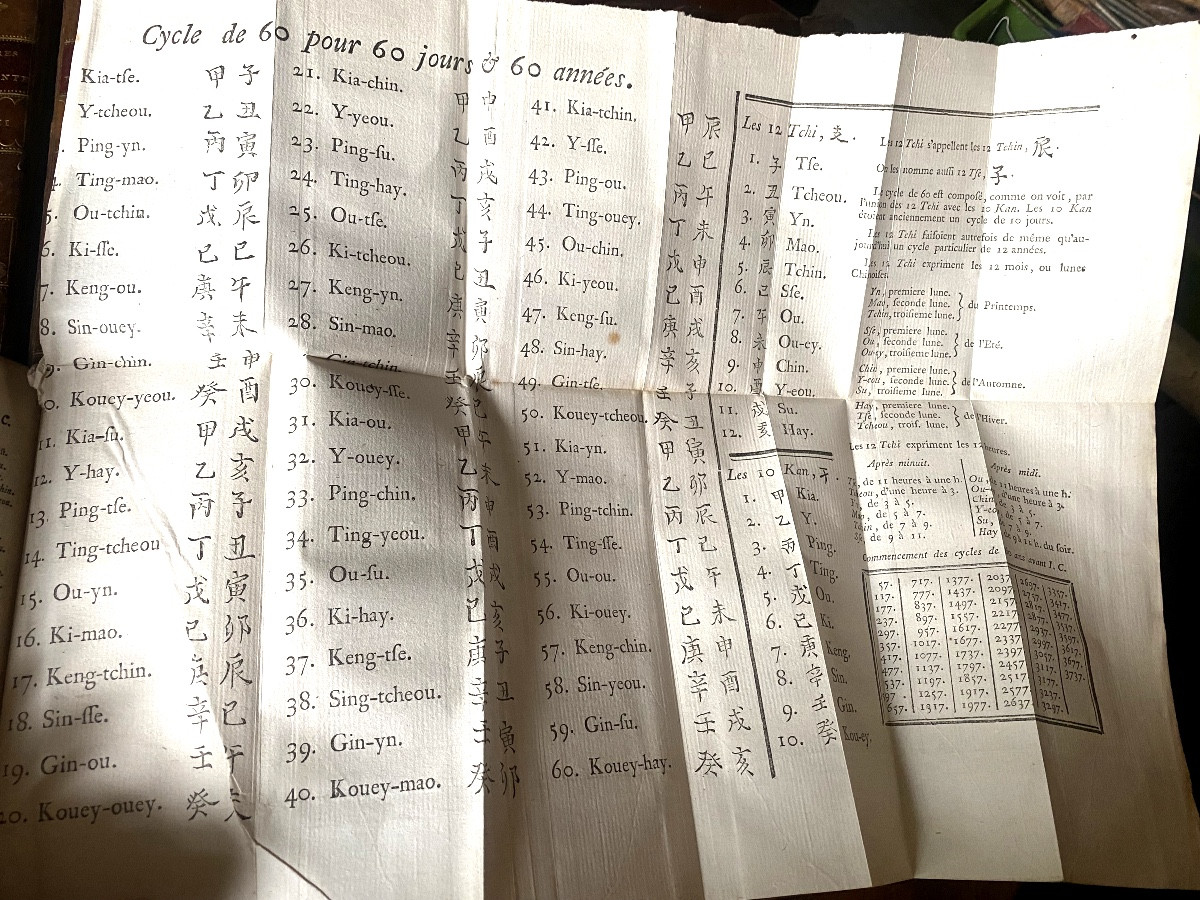 Cycle de 60 pour 60 jours & 60 années.
Kia-tſe. 甲子
Y-tcheou. 乙丑
Ping-yn. 丙寅
Ting-mao. 丁卯
5. Ou-tchin. 戊辰
6. Ki-ſſe. 己巳
7. Keng-ou. 庚午
8. Sin-ouey. 辛未
9. Gin-chin. 壬申
0. Kouey-yeou. 癸酉
11. Kia-ſu. 甲戌
12. Y-hay. 乙亥
13. Ping-tſe. 丙子
14. Ting-tcheou 丁丑
15. Ou-yn. 戊寅
16. Ki-mao. 己卯
17. Keng-tchin. 庚辰
18. Sin-ſſe. 辛巳
19. Gin-ou. 壬午
20. Kouey-ouey. 癸未
21. Kia-chin. 甲申
22. Y-yeou. 乙酉
23. Ping-ſu. 丙戌
24. Ting-hay. 丁亥
25. Ou-tſe. 戊子
26. Ki-tcheou. 己丑
27. Keng-yn. 庚寅
28. Sin-mao. 辛卯
Gin-tchin. 壬辰
30. Kouey-ſſe. 癸巳
31. Kia-ou. 甲午
32. Y-ouey. 乙未
33. Ping-chin. 丙申
34. Ting-yeou. 丁酉
35. Ou-ſu. 戊戌
36. Ki-hay. 己亥
37. Keng-tſe. 庚子
38. Sing-tcheou. 辛丑
39. Gin-yn. 壬寅
40. Kouey-mao. 癸卯
41. Kia-tchin. 甲辰
42. Y-ſſe. 乙巳
43. Ping-ou. 丙午
44. Ting-ouey. 丁未
45. Ou-chin. 戊申
46. Ki-yeou. 己酉
47. Keng-ſu. 庚戌
48. Sin-hay. 辛亥
49. Gin-tſe. 壬子
50. Kouey-tcheou. 癸丑
51. Kia-yn. 甲寅
52. Y-mao. 乙卯
53. Ping-tchin. 丙辰
54. Ting-ſſe. 丁巳
55. Ou-ou. 戊午
56. Ki-ouey. 己未
57. Keng-chin. 庚申
58. Sin-yeou. 辛酉
59. Gin-ſu. 壬戌
60. Kouey-hay. 癸亥
Les 12 Tchi, 支.
1. 子 Tſe.
2. 丑 Tcheou.
3. 寅 Yn.
4. 卯 Mao.
5. 辰 Tchin.
6. 巳 Sſe.
7. 午 Ou.
8. 未 Ou-ey.
9. 申 Chin.
10. 酉 Y-eou.
11. 戌 Su.
12. 亥 Hay.
Les 10 Kan, 干.
1. 甲 Kia.
2. 乙 Y.
3. 丙 Ping.
4. 丁 Ting.
5. 戊 Ou.
6. 己 Ki.
7. 庚 Keng.
8. 辛 Sin.
9. 壬 Gin.
10. 癸 Kou-ey.
Les 12 Tchi s'appellent les 12 Tchin, 辰.
On les nomme auſſi 12 Tſe, 子.
Le cycle de 60 eſt compoſé, comme on voit, par
l'union des 12 Tchi avec les 10 Kan. Les 10 Kan
étoient anciennement un cycle de 10 jours.
Les 12 Tchi faiſoient autrefois de même qu'au-
jourd'hui un cycle particulier de 12 années.
Les 12 Tchi expriment les 12 mois, ou lunes
Chinoiſes.
Yn, premiere lune.
Mao, ſeconde lune. } du Printemps.
Tchin, troiſieme lune.
Sſe, premiere lune.
Ou, ſeconde lune. } de l'Eté.
Ou-ey, troiſieme lune.
Chin, premiere lune.
Y-eou, ſeconde lune. } de l'Automne.
Su, troiſieme lune.
Hay, premiere lune.
Tſe, ſeconde lune. } de l'Hiver.
Tcheou, troiſ. lune.
Les 12 Tchi expriment les 12 heures.
Après minuit.
de 11 heures à une h.
Tcheou, d'une heure à 3.
de 3 à 5.
Mao, de 5 à 7.
Tchin, de 7 à 9.
de 9 à 11.
Après midi.
Ou, de 11 heures à une h.
d'une heure à 3.
Chin, de 3 à 5.
Y-eou, de 5 à 7.
Su, de 7 à 9.
Hay, de 9 à 11 h. du ſoir.
Commencement des cycles de 60 ans avant J. C.
57. 717. 1377. 2037. 2697. 3357.
117. 777. 1437. 2097. 2757. 3417.
177. 837. 1497. 2157. 2817. 3477.
237. 897. 1557. 2217. 2877. 3537.
297. 957. 1617. 2277. 2937. 3597.
357. 1017. *1677. 2337. 2997. 3617.
417. 1077. 1737. 2397. 3057. 3677.
477. 1137. 1797. 2457. 3117. 3737.
537. 1197. 1857. 2517. 3177.
597. 1257. 1917. 2577. 3237.
657. 1317. 1977. 2637. 3297.